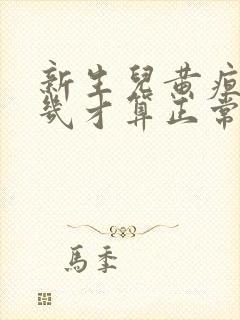 新生兒黃疸
幾才算正常
馬季